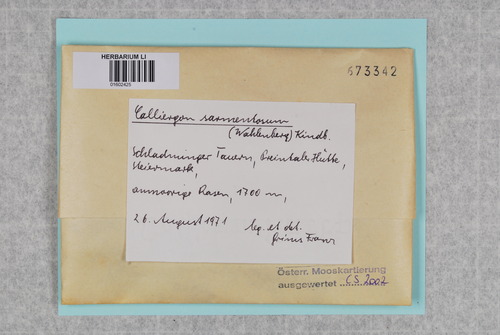 HERBARIUM LI
01602425
673342
Calliergon sarmentosum
(Wahlenberg) Kindb.
Schladminger Tauern, Preintaler Hütte,
Steiermark,
anmoorige Rasen, 1700 m,
26. August 1971 leg. et det.
Franz
Österr. Mooskartierung
ausgewertet CS 2002